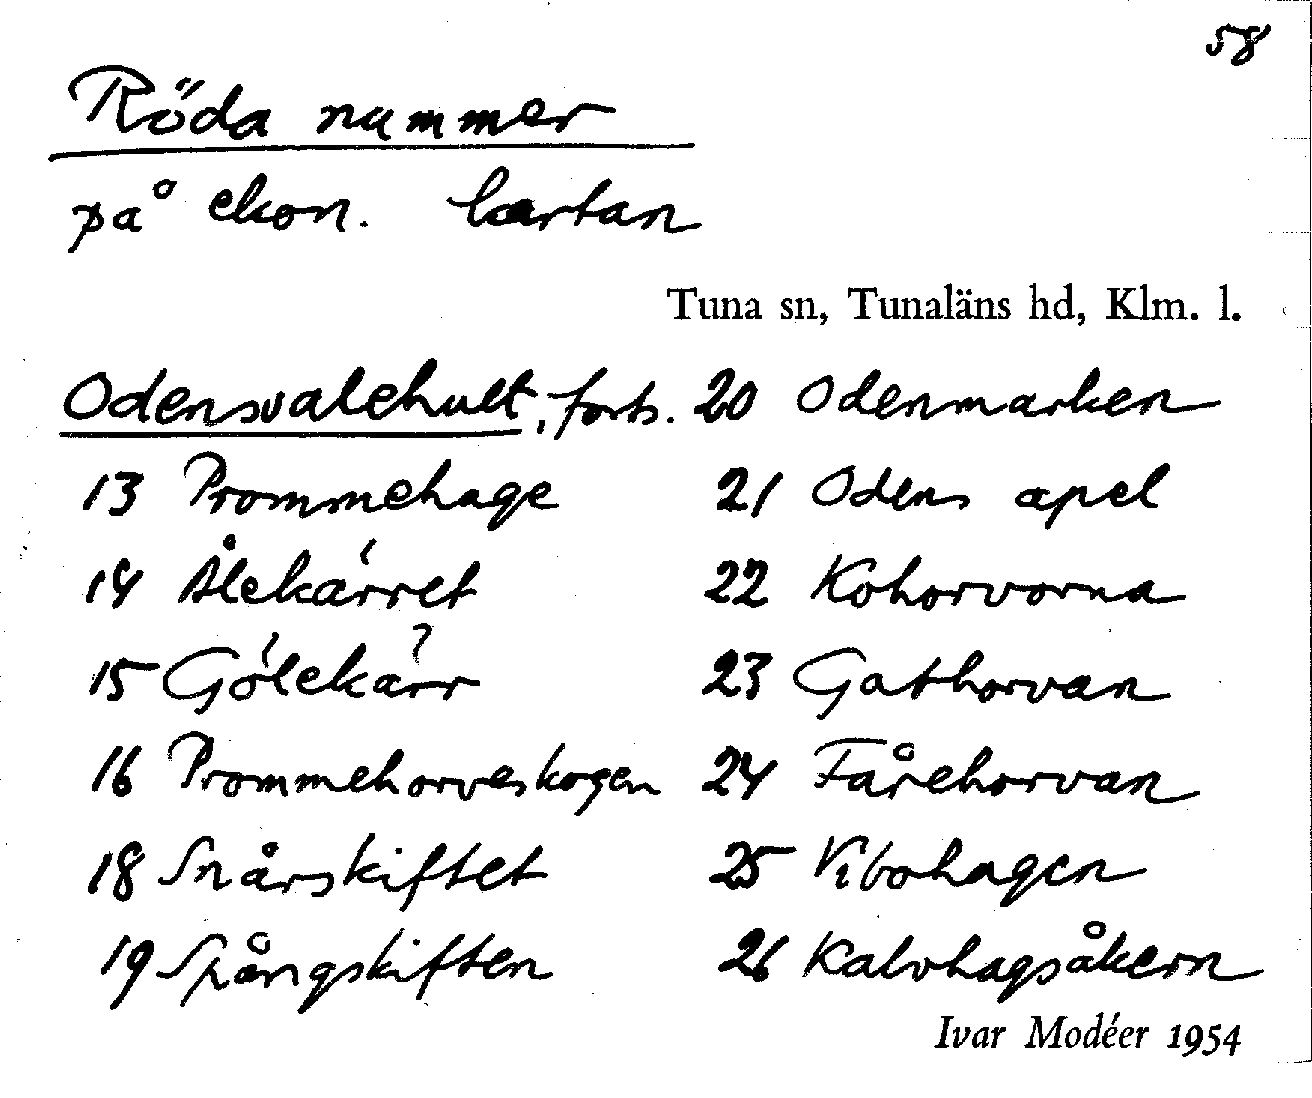 58
Röda nummer
på ekon. kartan
Tuna sn, Tunaläns hd, Klm. l.
Odensvalehult, forts.
13 Prommehage
14 Ålekärret
15 Gölekärr
16 Prommehorveskogen
18 Snårskiftet
19 Spångskiften
20 Odenmarken
21 Odens apel
22 Kohorvorna
23 Gathorvan
24 Fårehorvan
25 Vibohagen
26 Kalvhagsåkern
Ivar Modéer 1954